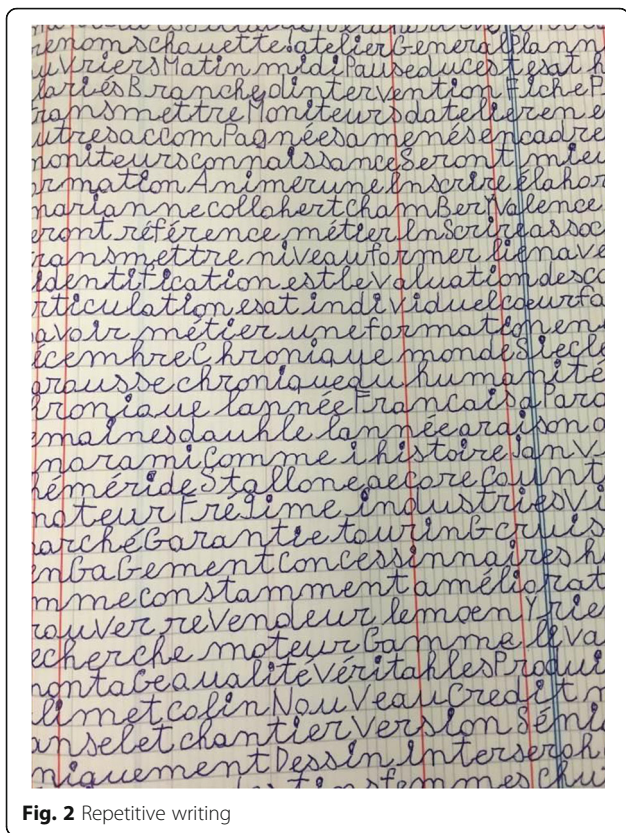 renomschouette!atelierGeneralPlann
uVriersMatinmidiPauseducestesath
lariésBranchedinterventionFicheP
ransmettreMoniteursdatelierene
utresaccomPagnéesamenésencadre
moniteursconnaissanceSerontmieu
rmationAnimeruneInscrireélabor
mariannecollahertchamBeryValence
erontréférencemétierInScrireassoc
ransmettreniveauformerlienave
identificationestleValuationdesco
rticulationesatindividuelcoeurfa
avoirmétieruneformationen
écemhreChroniquemondeSiecle
arousse chroniqueduhumanité
hroniquelannéeFrancaisaParo
emainesdauhlelannéearaisono
maramiCommeihistoireJanv
héméride Stallonepecorecount
mateurFréTimeindustriesVi
archéGarantietourinGcruis
enGaGementConcessinnairesh
mmeconstammentaméliorat
rouverreVendeurlemoenYrie
echerchemoteurGammeleva
montaGeaualitéVéritahlesProdui
limetcolinNouVeauCreditn
anseletchantierVersionSémi
niquementDessininterseroh
femmeschu
Fig. 2 Repetitive writing